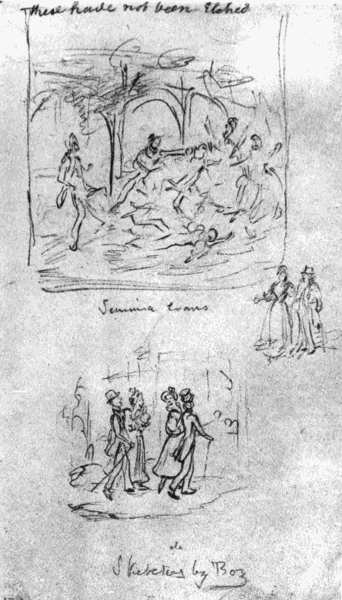 these have not been Etched
Jemima Evans
do
Sketches by Boz